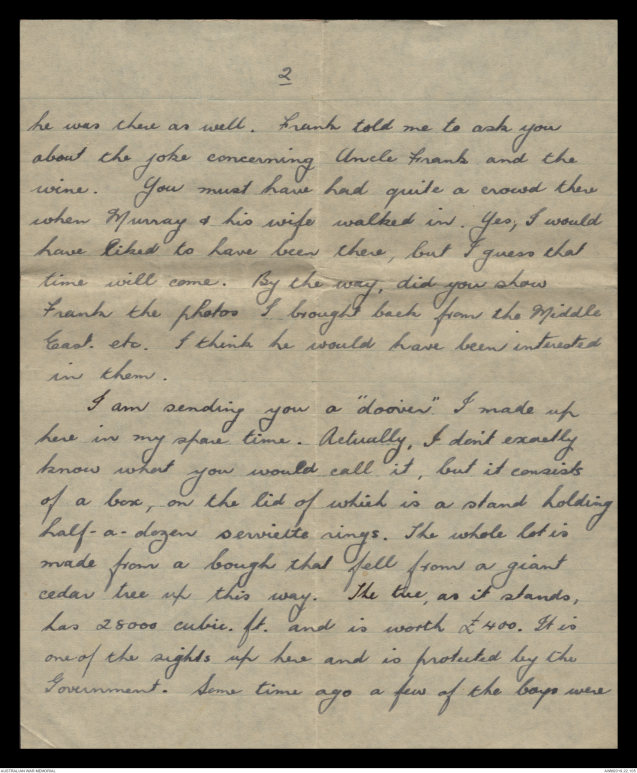 2
he was there as well. Frank told me to ask you
about the joke concerning Uncle Frank and the
wine. You must have had quite a crowd there
when Murray & his wife walked in. Yes, I would
have liked to have been there, but I guess that
time will come. By the way, did you show
Frank the photos I brought back from the Middle
East. etc. I think he would have been interested
in them.
I am sending you a "doover" I made up
here in my spare time. Actually, I don't exactly
know what you would call it, but it consists
of a box, on the lid of which is a stand holding
half-a-dozen serviette rings. The whole lot is
made from a bough that fell from a giant
cedar tree up this way. The tree, as it stands,
has 28000 cubic. ft. and is worth £400. It is
one of the sights up here and is protected by the
Government. Some time ago a few of the boys were
AUSTRALIAN WAR MEMORIAL